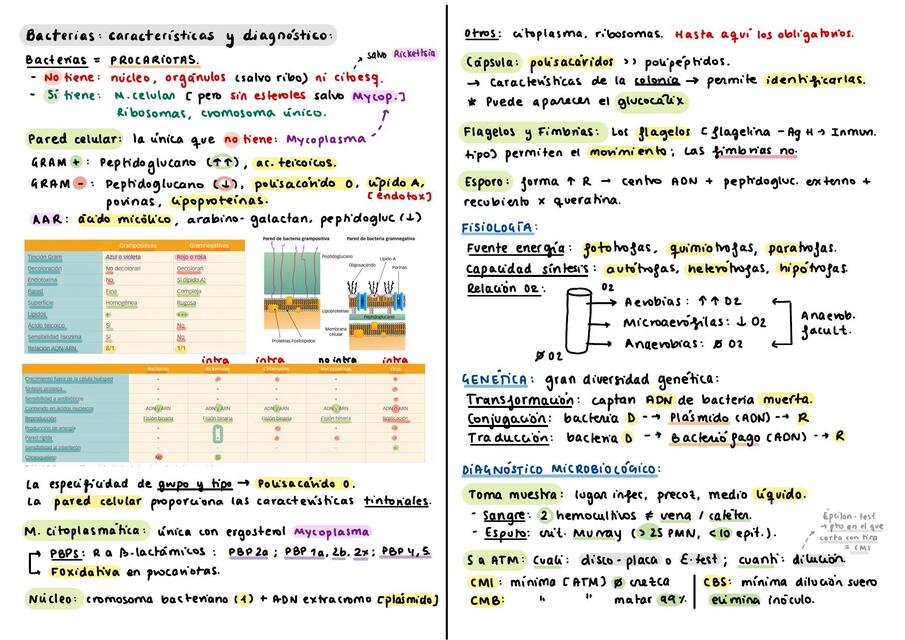 Bacterias: características y diagnóstico:
salvo Rickettsia
Bacterias = PROCARIOTAS.
- No tiene: núcleo, orgánulos (salvo ribo) ni citoesq.
- Sí tiene: M.celular [pero sin esteroles salvo Mycop.]
Ribosomas, cromosoma único.
Pared celular: la única que no tiene: Mycoplasma
GRAM +: Peptidoglucano (↑↑), ac. teicoicos.
GRAM -: Peptidoglucano (↓), polisacárido O, lípido A,
[endotox]
porinas, lipoproteínas.
AAR: ácido micólico, arabino-galactan, peptidogluc (↓)
Grampositivas Gramnegativas
Tinción Gram Azul o violeta Rojo o rosa
Decoloración No decoloran Decoloran
Endotoxina No Sí (lípido A)
Pared Fina Compleja
Superficie Homogénea Rugosa
Lípidos + +++
Ácido teicoico Sí No
Sensibilidad lisozima Sí No
Relación ADN/ARN 8/1 1/1
Pared de bacteria grampositiva Pared de bacteria gramnegativa
Peptidoglucano
Lípido A
Oligosacárido
Porinas
Lipoproteínas
Peptidoglucano
Membrana celular
Proteínas Fosfolípidos
intra intra no intra intra
Bacterias Rickettsias Chlamydias Mycoplasmas Virus
Crecimiento fuera de la célula huésped
Síntesis proteica
Sensibilidad a antibióticos
Contenido en ácidos nucleicos ADN y ARN ADN y ARN ADN y ARN ADN y ARN ADN o ARN
Reproducción Fisión binaria Fisión binaria Fisión binaria Fisión binaria Replicación
Producción de energía
Pared rígida
Sensibilidad al interferón
Citoesqueleto NO Sí
La especificidad de grupo y tipo → Polisacárido O.
La pared celular proporciona las características tintoriales.
M. citoplasmática: única con ergosterol Mycoplasma
PBPs: R a β-lactámicos: PBP2a; PBP 1a, 2b, 2x; PBP 4, 5
F.oxidativa en procariotas.
Núcleo: cromosoma bacteriano (1) + ADN extracromo [plásmido]
Otros: citoplasma, ribosomas. Hasta aquí los obligatorios.
Cápsula: polisacáridos >> polipéptidos.
→ Características de la colonia → permite identificarlas.
* Puede aparecer el glucocálix
Flagelos y Fimbrias: Los flagelos [flagelina - Ag H → Inmun.
tipo] permiten el movimiento; las fimbrias no.
Esporo: forma ↑ R → centro ADN + peptidogluc. externo +
recubiento x queratina.
FISIOLOGÍA:
Fuente energía: fototrofas, quimiotrofas, paratrofas.
Capacidad síntesis: autótrofas, heterótrofas, hipótrofas.
Relación O2: O2
→ Aerobias: ↑↑ O2
→ Microaerófilas: ↓ O2
→ Anaerobias: Ø O2
Anaerob. facult.
Ø O2
GENÉTICA: gran diversidad genética:
Transformación: captan ADN de bacteria muerta.
Conjugación: bacteria D --→ Plásmido (ADN) --→ R
Traducción: bacteria D --→ Bacteriófago (ADN) --→ R
DIAGNÓSTICO MICROBIOLÓGICO:
Toma muestra: lugar infec, precoz, medio líquido.
- Sangre: 2 hemocultivos ≠ vena / catéter.
- Esputo: crit. Murray (>25 PMN, <10 epit.).
Épsilon-test
→ pto en el que
corta con tira
= CMI
S a ATM: cuali: disco-placa o E-test; cuanti: dilución
CMI: mínima [ATM] Ø crezca
CMB: " " matar 99%.
CBS: mínima dilución suero
elimina inóculo.